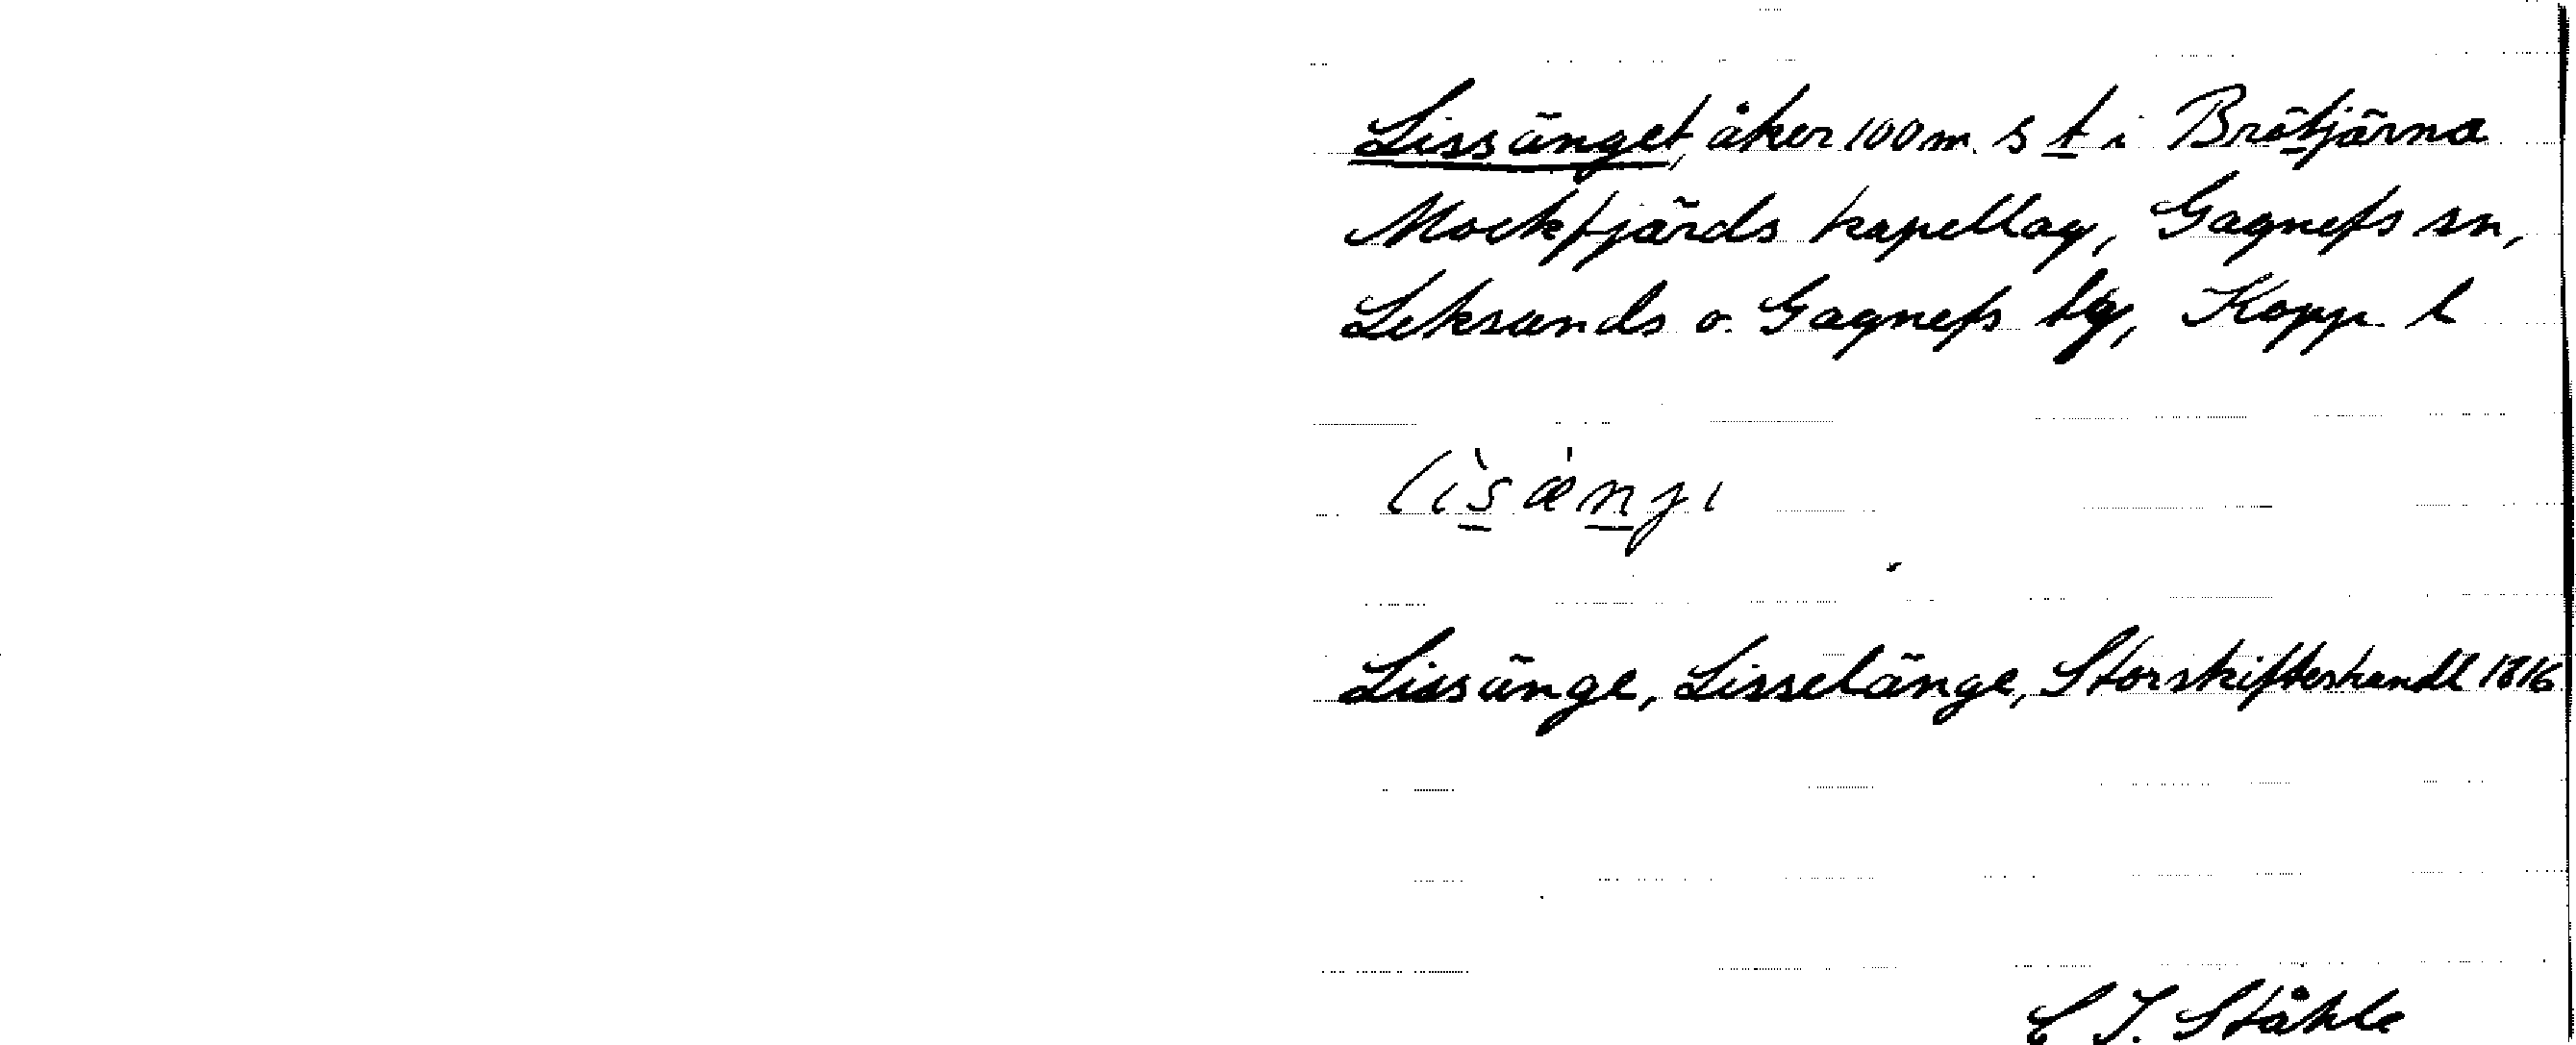 Lissänget, åker 100 m. s t i Brötjärna
Mockfjärds kapellag, Gagnefs sn,
Leksands o. Gagnefs tg, Kopp. l
lìsǽnji
Lissänge, Lisselänge, Storskifteshandl 1816
C I. Ståhle